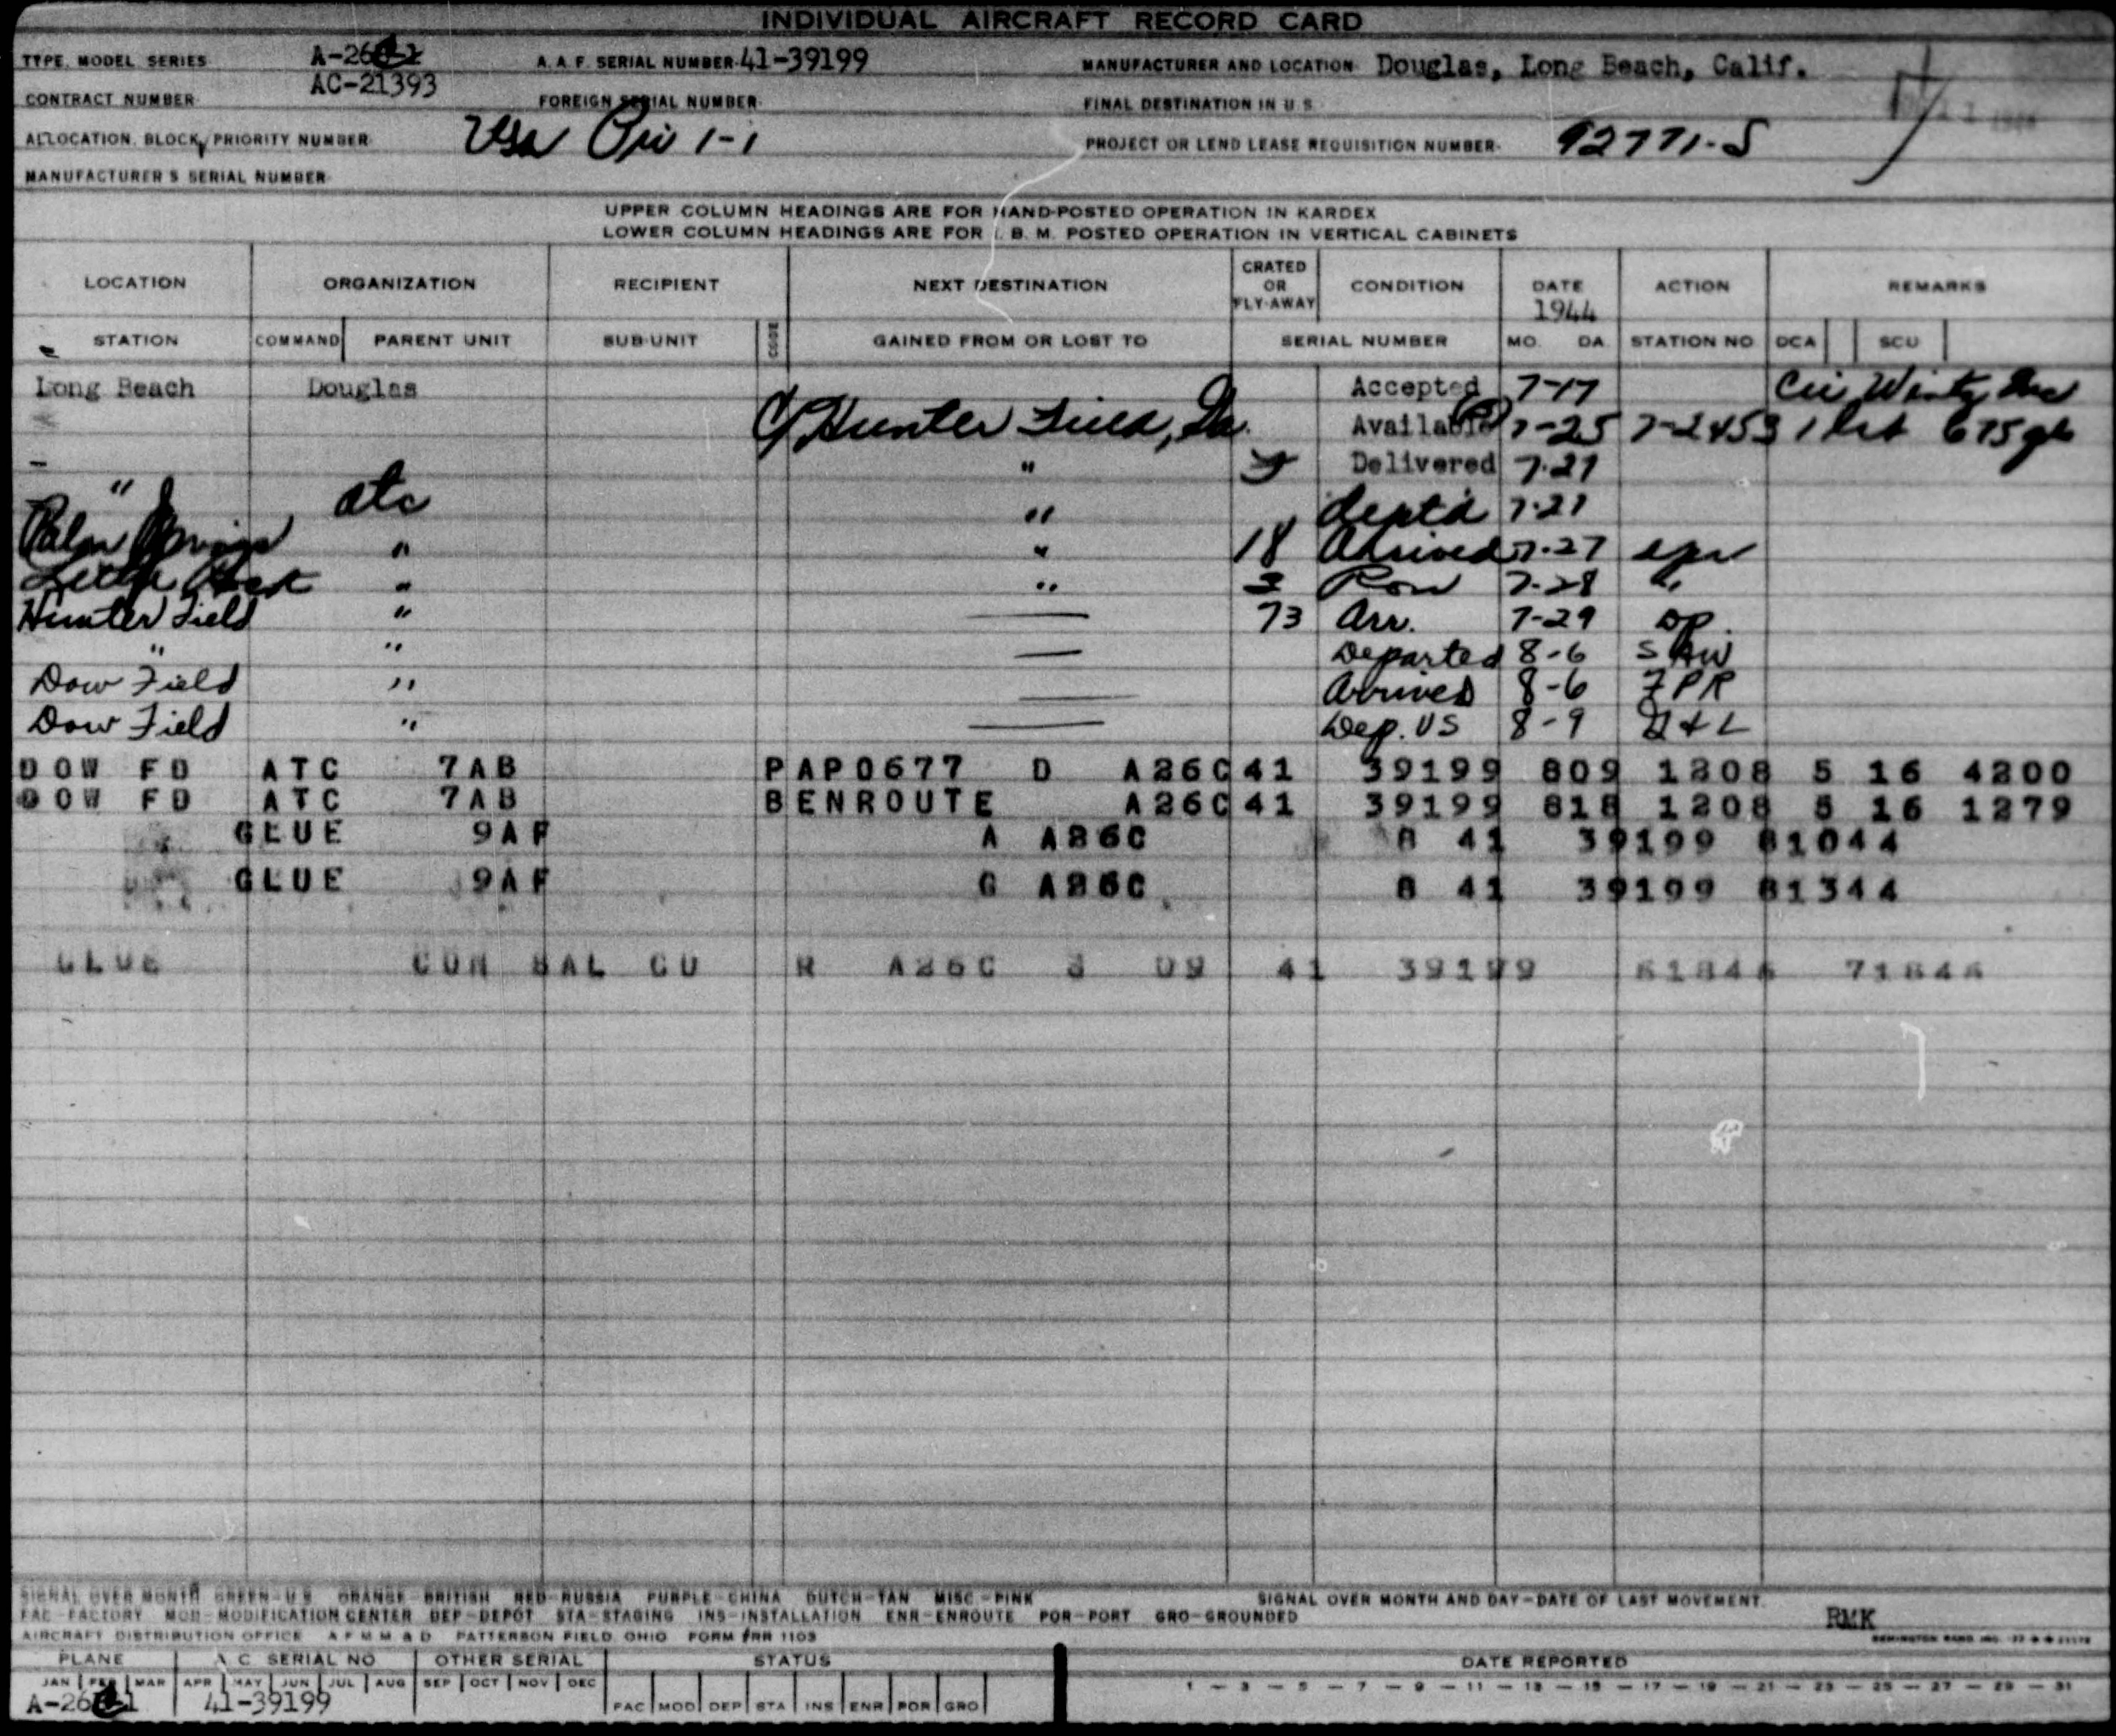 INDIVIDUAL AIRCRAFT RECORD CARD
TYPE, MODEL SERIES A-26 A. A. F. SERIAL NUMBER 41-39199 MANUFACTURER AND LOCATION Douglas, Long Beach, Calif.
CONTRACT NUMBER AC-21393 FOREIGN SERIAL NUMBER FINAL DESTINATION IN U S
ALLOCATION, BLOCK, PRIORITY NUMBER Usa Pri 1-1 PROJECT OR LEND LEASE REQUISITION NUMBER 92771-S
MANUFACTURER'S SERIAL NUMBER
UPPER COLUMN HEADINGS ARE FOR HAND-POSTED OPERATION IN KARDEX
LOWER COLUMN HEADINGS ARE FOR I. B. M. POSTED OPERATION IN VERTICAL CABINETS
LOCATION ORGANIZATION RECIPIENT NEXT DESTINATION CRATED OR FLY-AWAY CONDITION DATE 1944 ACTION REMARKS
STATION COMMAND PARENT UNIT SUB-UNIT CODE GAINED FROM OR LOST TO SERIAL NUMBER MO. DA. STATION NO DCA SCU
Long Beach Douglas Accepted 7-17
Hunter Field, Ga. Available 7-25 7-2453
" Delivered 7-27
" atc " dept'd 7-27
Palm Springs " " 18 Arrived 7-27
Little Rock " " 3 Ron 7-28 "
Hunter Field " — 73 Arr. 7-29 OP.
" " — Departed 8-6
Dow Field " — Arrived 8-6 FPR
Dow Field " — Dep. US 8-9
DOW FD ATC 7AB PAP0677 D A26C 41 39199 809 1208 5 16 4200
DOW FD ATC 7AB BENROUTE A26C 41 39199 818 1208 5 16 1279
GLUE 9AF A A26C 8 41 39199 81044
GLUE 9AF G A26C 8 41 39199 81344
GLUE CON SAL CU R A26C 09 41 39199
SIGNAL OVER MONTH GREEN-U S ORANGE-BRITISH RED-RUSSIA PURPLE-CHINA DUTCH-TAN MISC-PINK SIGNAL OVER MONTH AND DAY-DATE OF LAST MOVEMENT.
FAC-FACTORY MOD-MODIFICATION CENTER DEP-DEPOT STA-STAGING INS-INSTALLATION ENR-ENROUTE POR-PORT GRO-GROUNDED RMK
AIRCRAFT DISTRIBUTION OFFICE A F M M & D PATTERSON FIELD, OHIO FORM #RR 1103
PLANE A C SERIAL NO OTHER SERIAL STATUS DATE REPORTED
JAN FEB MAR APR MAY JUN JUL AUG SEP OCT NOV DEC 1 - 3 - 5 - 7 - 9 - 11 - 13 - 15 - 17 - 19 - 21 - 23 - 25 - 27 - 29 - 31
A-26 41-39199 FAC MOD DEP STA INS ENR POR GRO